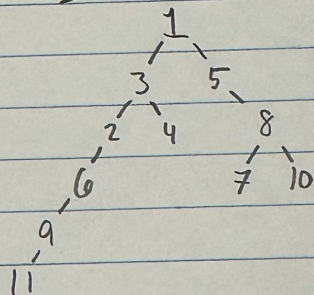 1
3 5
2 4 8
6 7 10
9
11